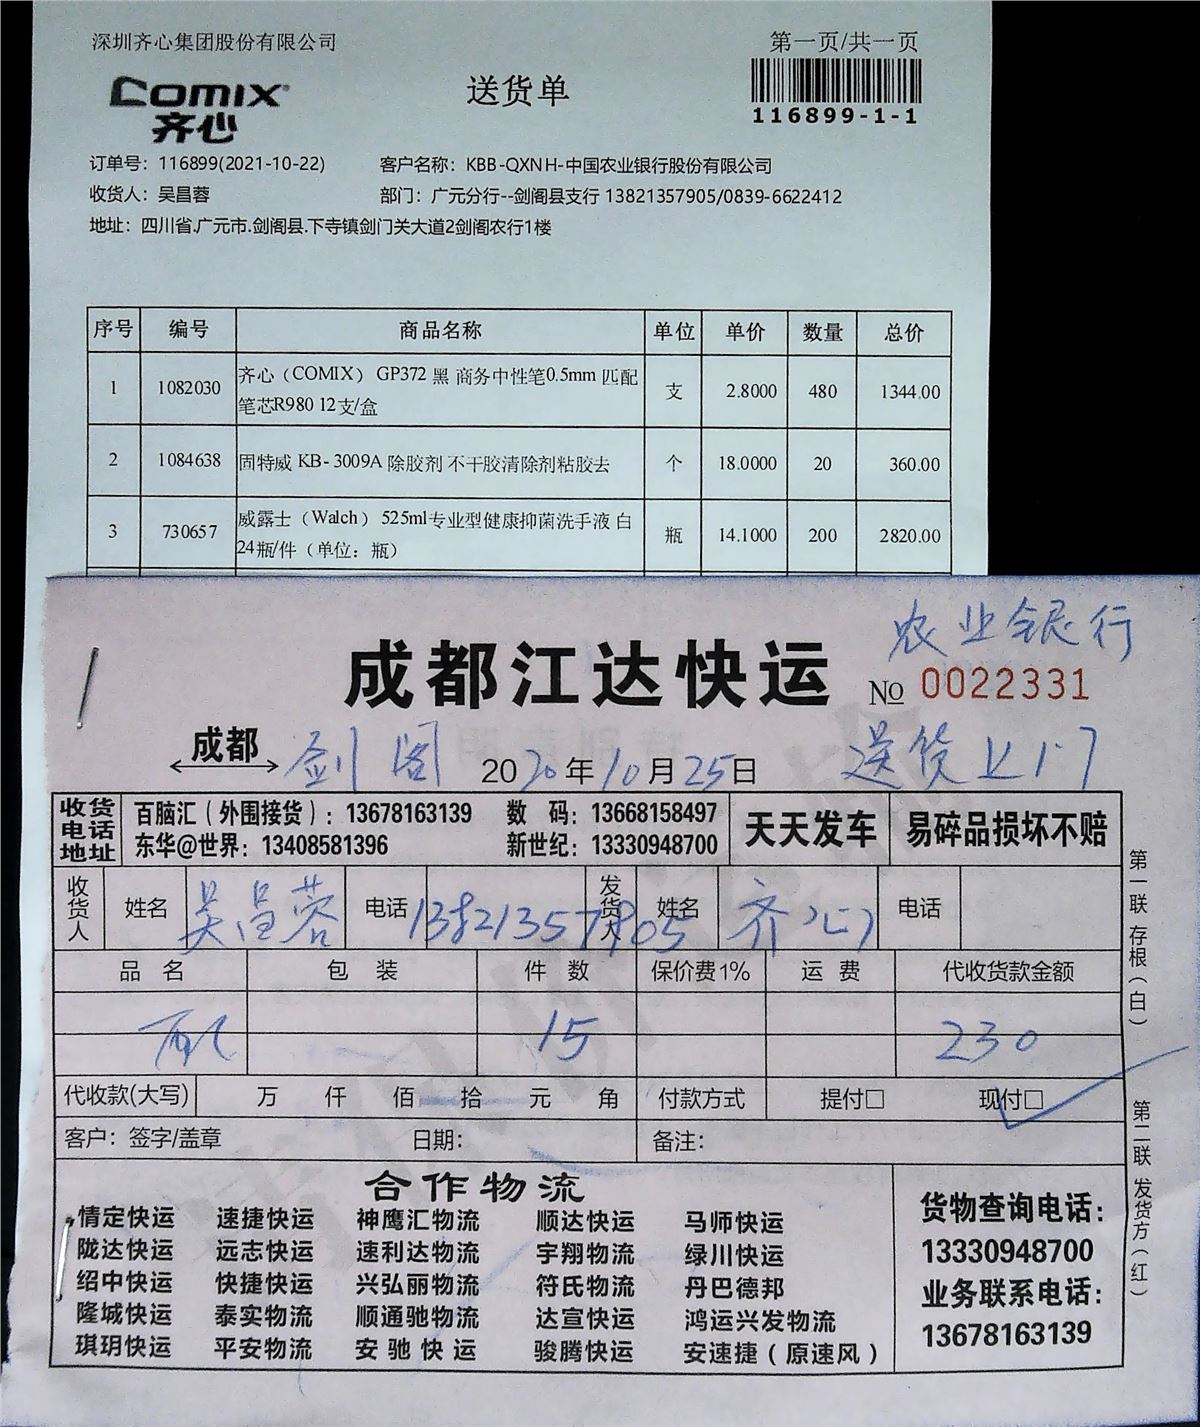 深圳齐心集团股份有限公司
第一页/共一页
COMIX
齐心
送货单
116899-1-1
订单号：116899(2021-10-22) 客户名称：KBB-QXNH-中国农业银行股份有限公司
收货人：吴昌蓉 部门：广元分行--剑阁县支行 13821357905/0839-6622412
地址：四川省.广元市.剑阁县.下寺镇剑门关大道2剑阁农行1楼
序号 编号 商品名称 单位 单价 数量 总价
1 1082030 齐心（COMIX） GP372 黑 商务中性笔0.5mm 匹配 支 2.8000 480 1344.00
笔芯R980 12支/盒
2 1084638 固特威 KB-3009A 除胶剂 不干胶清除剂粘胶去 个 18.0000 20 360.00
3 730657 威露士（Walch） 525ml专业型健康抑菌洗手液 白 瓶 14.1000 200 2820.00
24瓶/件（单位：瓶）
农业银行
成都江达快运 № 0022331
成都 剑阁 2020年10月25日 送货上门
收货电话地址 百脑汇（外围接货）：13678163139 数 码：13668158497 天天发车 易碎品损坏不赔
东华@世界：13408581396 新世纪：13330948700
收货人 姓名 吴昌蓉 电话 13821357905 发货人 姓名 齐心 电话
品 名 包 装 件 数 保价费1% 运 费 代收货款金额
配 15 230
代收款(大写) 万 仟 佰 拾 元 角 付款方式 提付□ 现付□
客户：签字/盖章 日期： 备注：
合作物流
情定快运 速捷快运 神鹰汇物流 顺达快运 马师快运
陇达快运 远志快运 速利达物流 宇翔物流 绿川快运
绍中快运 快捷快运 兴弘丽物流 符氏物流 丹巴德邦
隆城快运 泰实物流 顺通驰物流 达宣快运 鸿运兴发物流
琪玥快运 平安物流 安驰快运 骏腾快运 安速捷（原速风）
货物查询电话：
13330948700
业务联系电话：
13678163139
第一联 存根（白）
第二联 发货方（红）